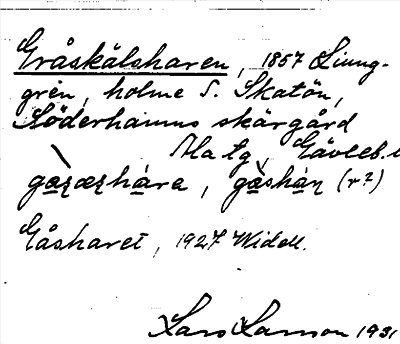 Gråskälsharen, 1857 Ljung-
grén, holme S. Skatön,
Söderhamns skärgård
Ala tg, Gävleb.
gaʐæʐhare, gåshaʐ (r?)
Gåsharet, 1927 Widell.
Lars Larsson 1931